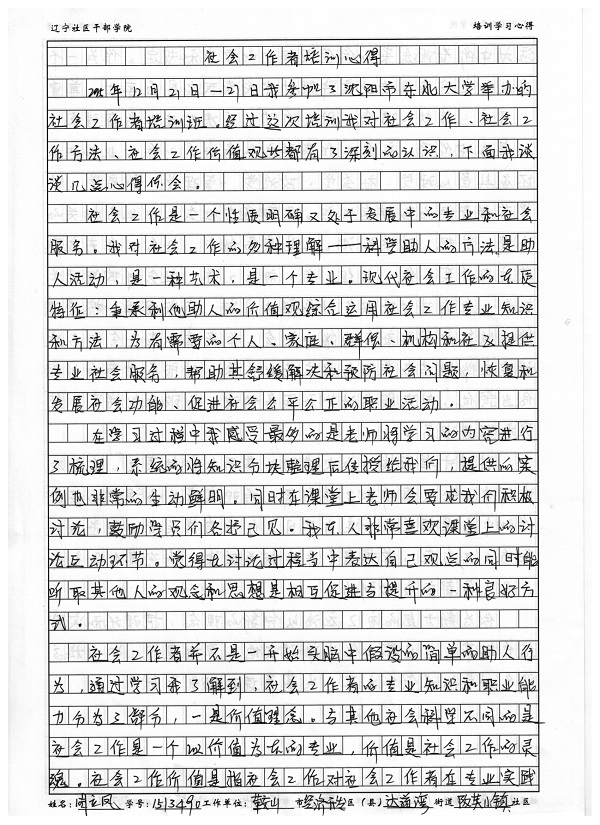 辽宁社区干部学院 培训学习心得
社会工作者培训心得
年12月21日—27日我参加了沈阳市东北大学举办的
社会工作者培训班。经过这次培训我对社会工作、社会工
作方法、社会工作价值观些都有了深刻的认识,下面我谈
谈几点心得体会。
社会工作是一个性质明确又处于发展中的专业和社会
服务。我对社会工作的多种理解——科学助人的方法是助
人活动,是一种艺术,是一个专业。现代社会工作的本质
特征:秉承利他助人的价值观综合运用社会工作专业知识
和方法,为有需要的个人、家庭、群体、机构和社区提供
专业社会服务,帮助其舒缓解决和预防社会问题,恢复和
发展社会功能、促进社会公平公正的职业活动。
在学习过程中我感受最多的是老师将学习的内容进行
了梳理,系统的将知识分块整理后传授给我们,提供的案
例也非常的生动鲜明。同时在课堂上老师会要求我们积极
讨论,鼓励学员们各抒己见。我本人非常喜欢课堂上的讨
论互动环节。觉得在讨论过程当中表达自己观点的同时能
听取其他人的观念和思想是相互促进与提升的一种良好方
式。
社会工作者并不是一开始头脑中假设的简单的助人行
为,通过学习我了解到,社会工作者的专业知识和职业能
力分为三部分,一是价值理念。与其他社会科学不同的是
社会工作是一个以价值为本的专业,价值是社会工作的灵
魂。社会工作价值是指社会工作对社会工作者在专业实践
姓名: 学号:1513490 工作单位:鞍山 市 经济开发 区(县) 达道湾 街道 社区